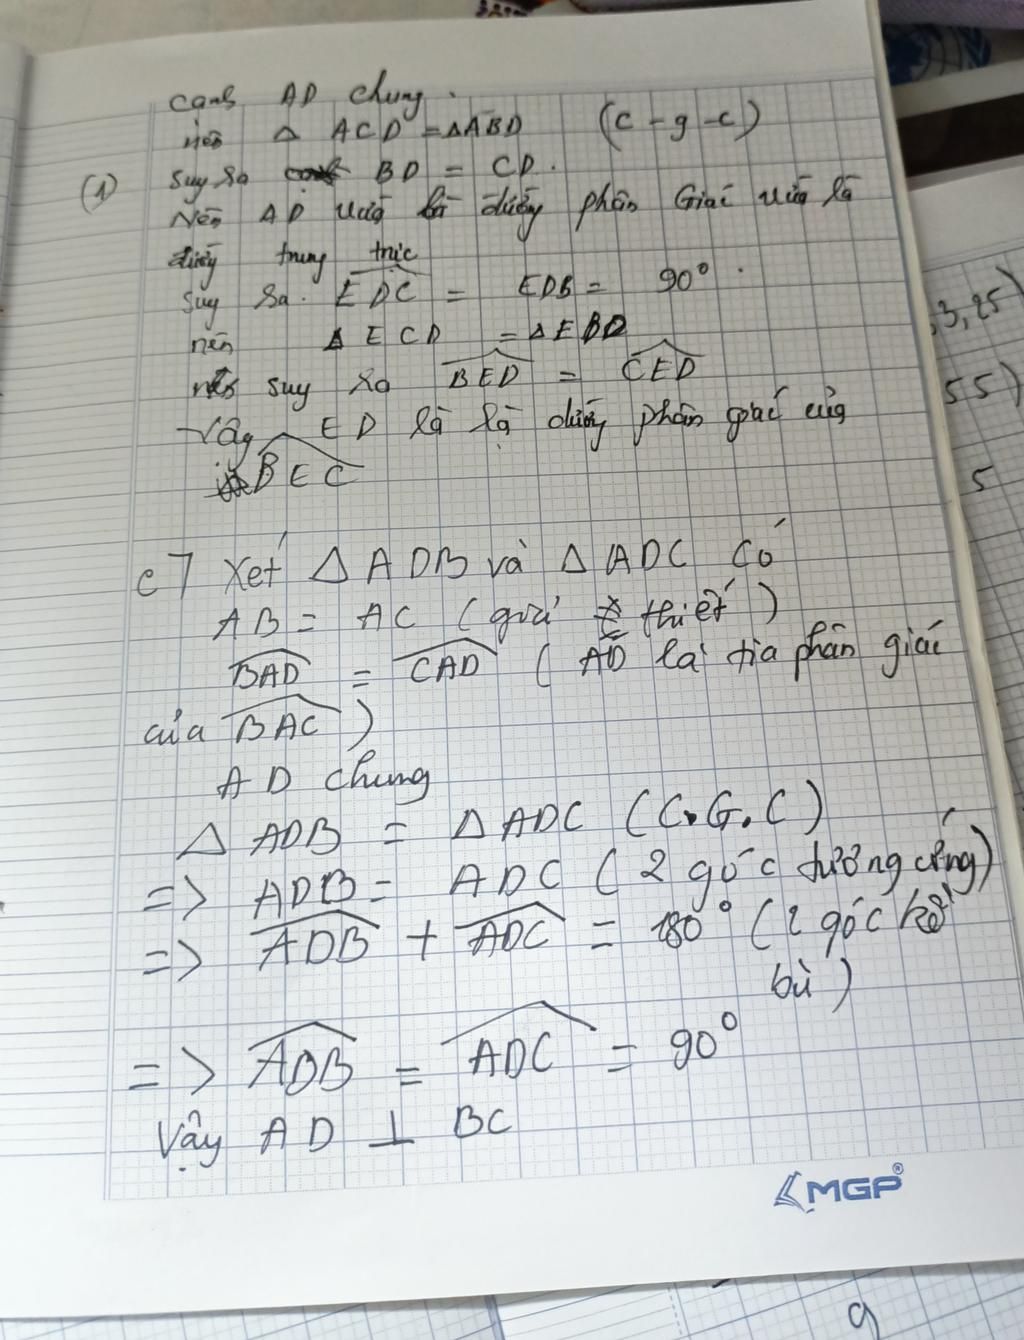 cạnh AD chung.
nên Δ ACD = ΔABD (c - g - c)
(1) suy ra BD = CD.
Nên AD vừa là đường phân Giác vừa là
đường trung trực
suy ra. EDC = EDB = 90°.
nên Δ ECD = ΔEBD
suy ra BED = CED
Vậy ED là là đường phân giác của
BEC
c) Xét Δ ADB và Δ ADC có
AB = AC (giả thiết)
BAD = CAD (AD là tia phân giác
của BAC)
AD chung
Δ ADB = Δ ADC (C.G.C)
=> ADB = ADC (2 góc tương cứng)
=> ADB + ADC = 180° (2 góc kề
bù)
=> ADB = ADC = 90°
Vậy AD ⊥ BC
MGP®
,3,25)
55)
5
9